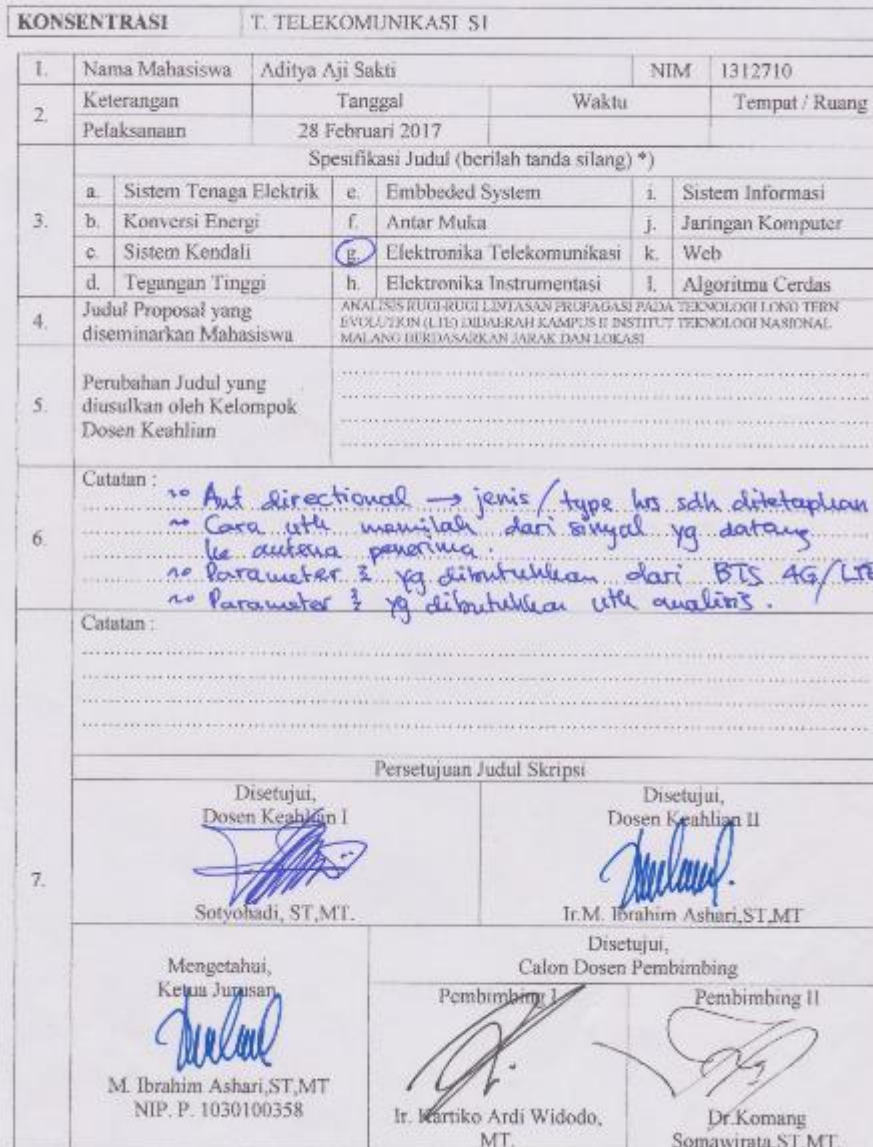 KONSENTRASI T. TELEKOMUNIKASI S1
1. Nama Mahasiswa Aditya Aji Sakti NIM 1312710
2. Keterangan Tanggal Waktu Tempat / Ruang
Pelaksanaan 28 Februari 2017
3. Spesifikasi Judul (berilah tanda silang) *)
a. Sistem Tenaga Elektrik e. Embbeded System i. Sistem Informasi
b. Konversi Energi f. Antar Muka j. Jaringan Komputer
c. Sistem Kendali g. Elektronika Telekomunikasi k. Web
d. Tegangan Tinggi h. Elektronika Instrumentasi l. Algoritma Cerdas
4. Judul Proposal yang diseminarkan Mahasiswa
ANALISIS RUGI-RUGI LINTASAN PROPAGASI PADA TEKNOLOGI LONG TERN
EVOLUTION (LTE) DIDAERAH KAMPUS II INSTITUT TEKNOLOGI NASIONAL
MALANG BERDASARKAN JARAK DAN LOKASI
5. Perubahan Judul yang
diusulkan oleh Kelompok
Dosen Keahlian
6. Catatan :
Ant directional → jenis / type hrs sdh ditetapkan
Cara utk memilah dari sinyal yg datang
ke antena penerima.
Parameter 2 yg dibutuhkan dari BTS 4G/LTE
Parameter 2 yg dibutuhkan utk analisis.
7. Catatan :
Persetujuan Judul Skripsi
Disetujui,
Dosen Keahlian I
Sotyohadi, ST,MT.
Disetujui,
Dosen Keahlian II
Ir.M. Ibrahim Ashari,ST,MT
Mengetahui,
Ketua Jurusan
M. Ibrahim Ashari,ST,MT
NIP. P. 1030100358
Disetujui,
Calon Dosen Pembimbing
Pembimbing I
Ir. Kartiko Ardi Widodo,
MT.
Pembimbing II
Dr.Komang
Somawirata,ST,MT.